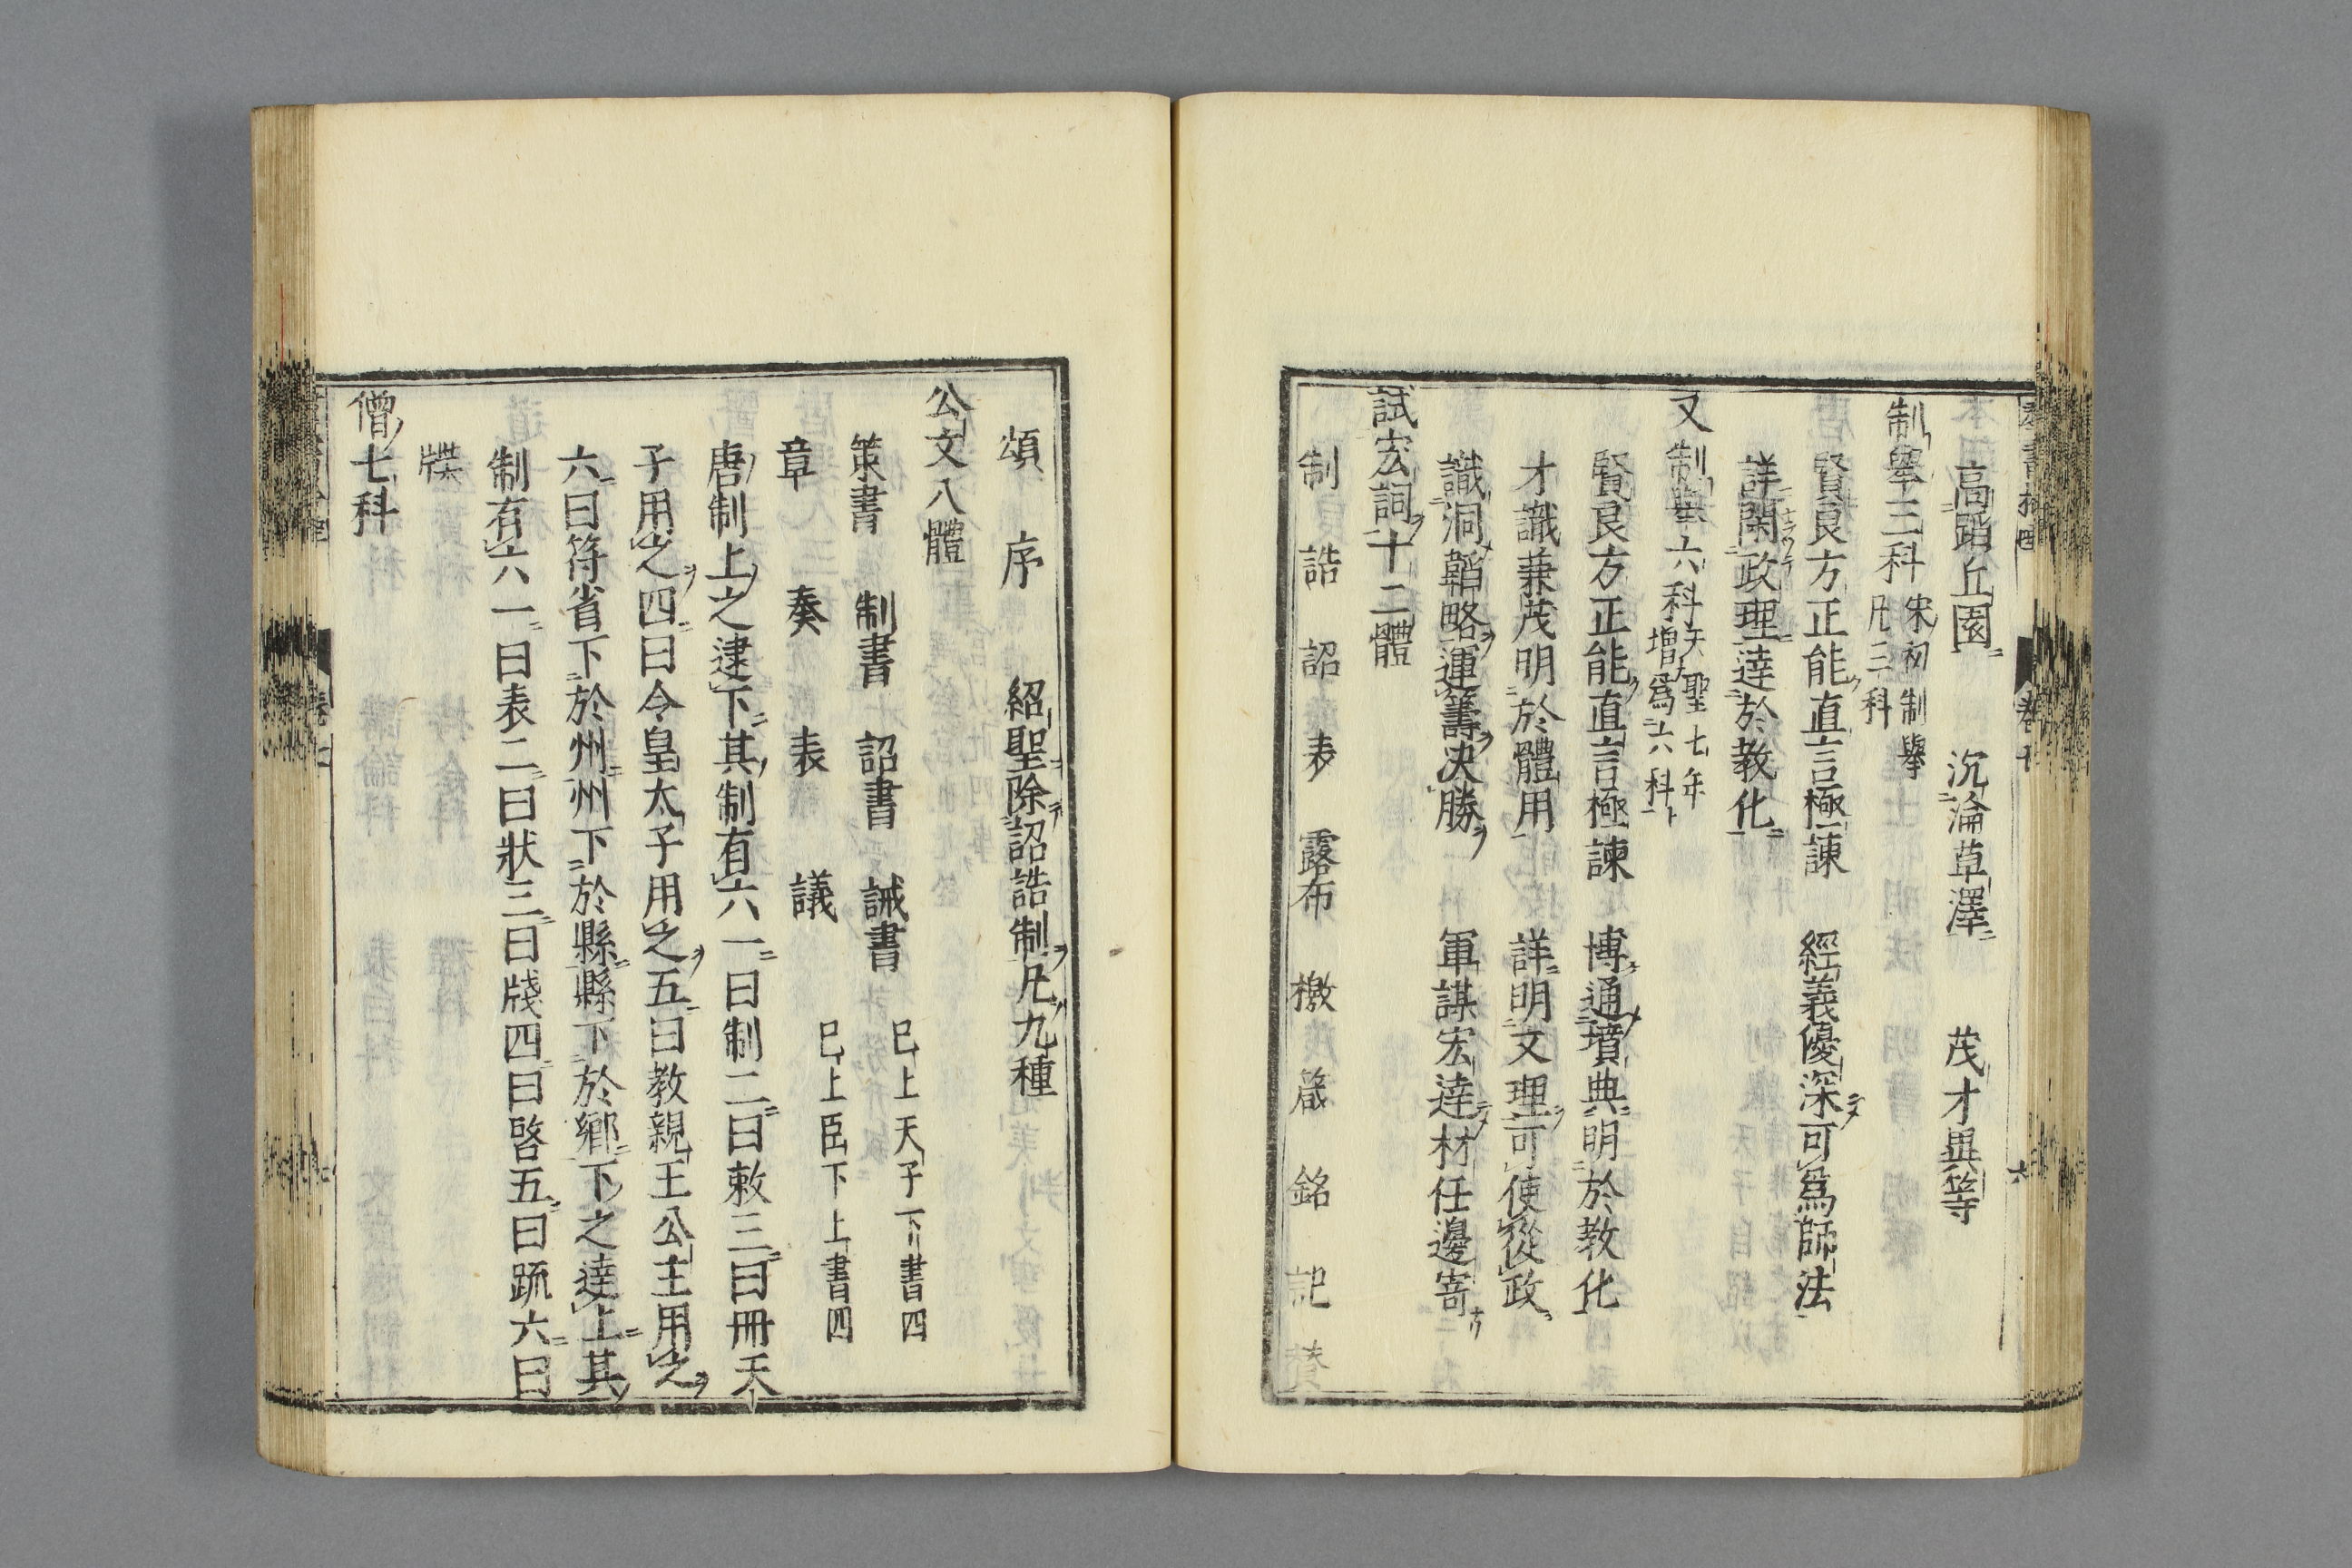 高蹈丘園 沉淪草澤 茂才異等
制舉三科 宋初制舉
凡三科
賢良方正能直言極諫 經義優深可爲師法
詳閑政理達於教化
又制舉六科 天聖七年
增爲六科
賢良方正能直言極諫 博通墳典明於教化
才識兼茂明於體用 詳明文理可使從政
識洞韜略運籌決勝 軍謀宏達材任邊寄
試宏詞十二體
制 誥 詔 表 露布 檄 箴 銘 記 贊
頌 序 紹聖除詔誥制凡九種
公文八體
策書 制書 詔書 誡書 已上天子下書四
章 奏 表 議 已上臣下上書四
唐制上之逮下其制有六一曰制二曰敕三曰冊天
子用之四曰令皇太子用之五曰教親王公主用之
六曰符省下於州州下於縣縣下於鄉下之達上其
制有六一曰表二曰狀三曰牋四曰啓五曰䟽六曰
牒
僧七科